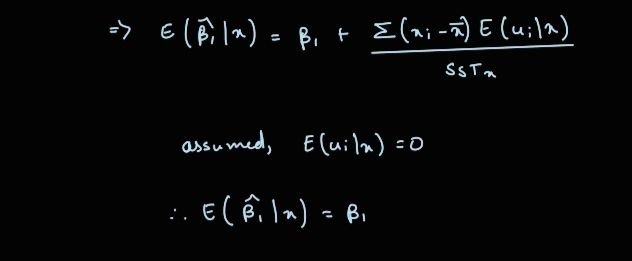 => E(β̂₁|x) = β₁ + Σ(xᵢ-x̄) E(uᵢ|x) / SSTₓ
assumed, E(uᵢ|x) = 0
∴ E(β̂₁|x) = β₁